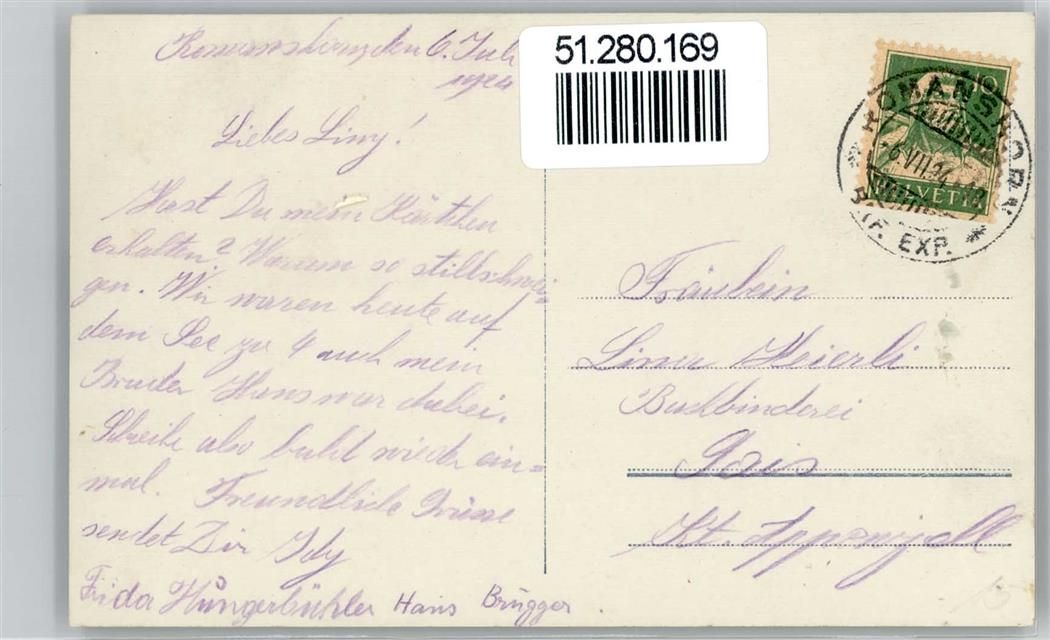 Romanshorn, den 6. Juli
1924
Liebes Liny!
Hast Du mein Kärtchen
erhalten? Warum so stillschwei-
gen. Wir waren heute auf
dem See zu 4 auch mein
Bruder Hans war dabei.
Schreibe also bald wieder ein=
mal. Freundliche Grüsse
sendet Dir Idy
Frida Hungerbühler Hans Brügger.
51.280.169
10
HELVETIA
ROMANSHORN
-6.VII.24
BRF. EXP.
Fräulein
Lina Heierli
Buchbinderei
Gais
Kt. Appenzell